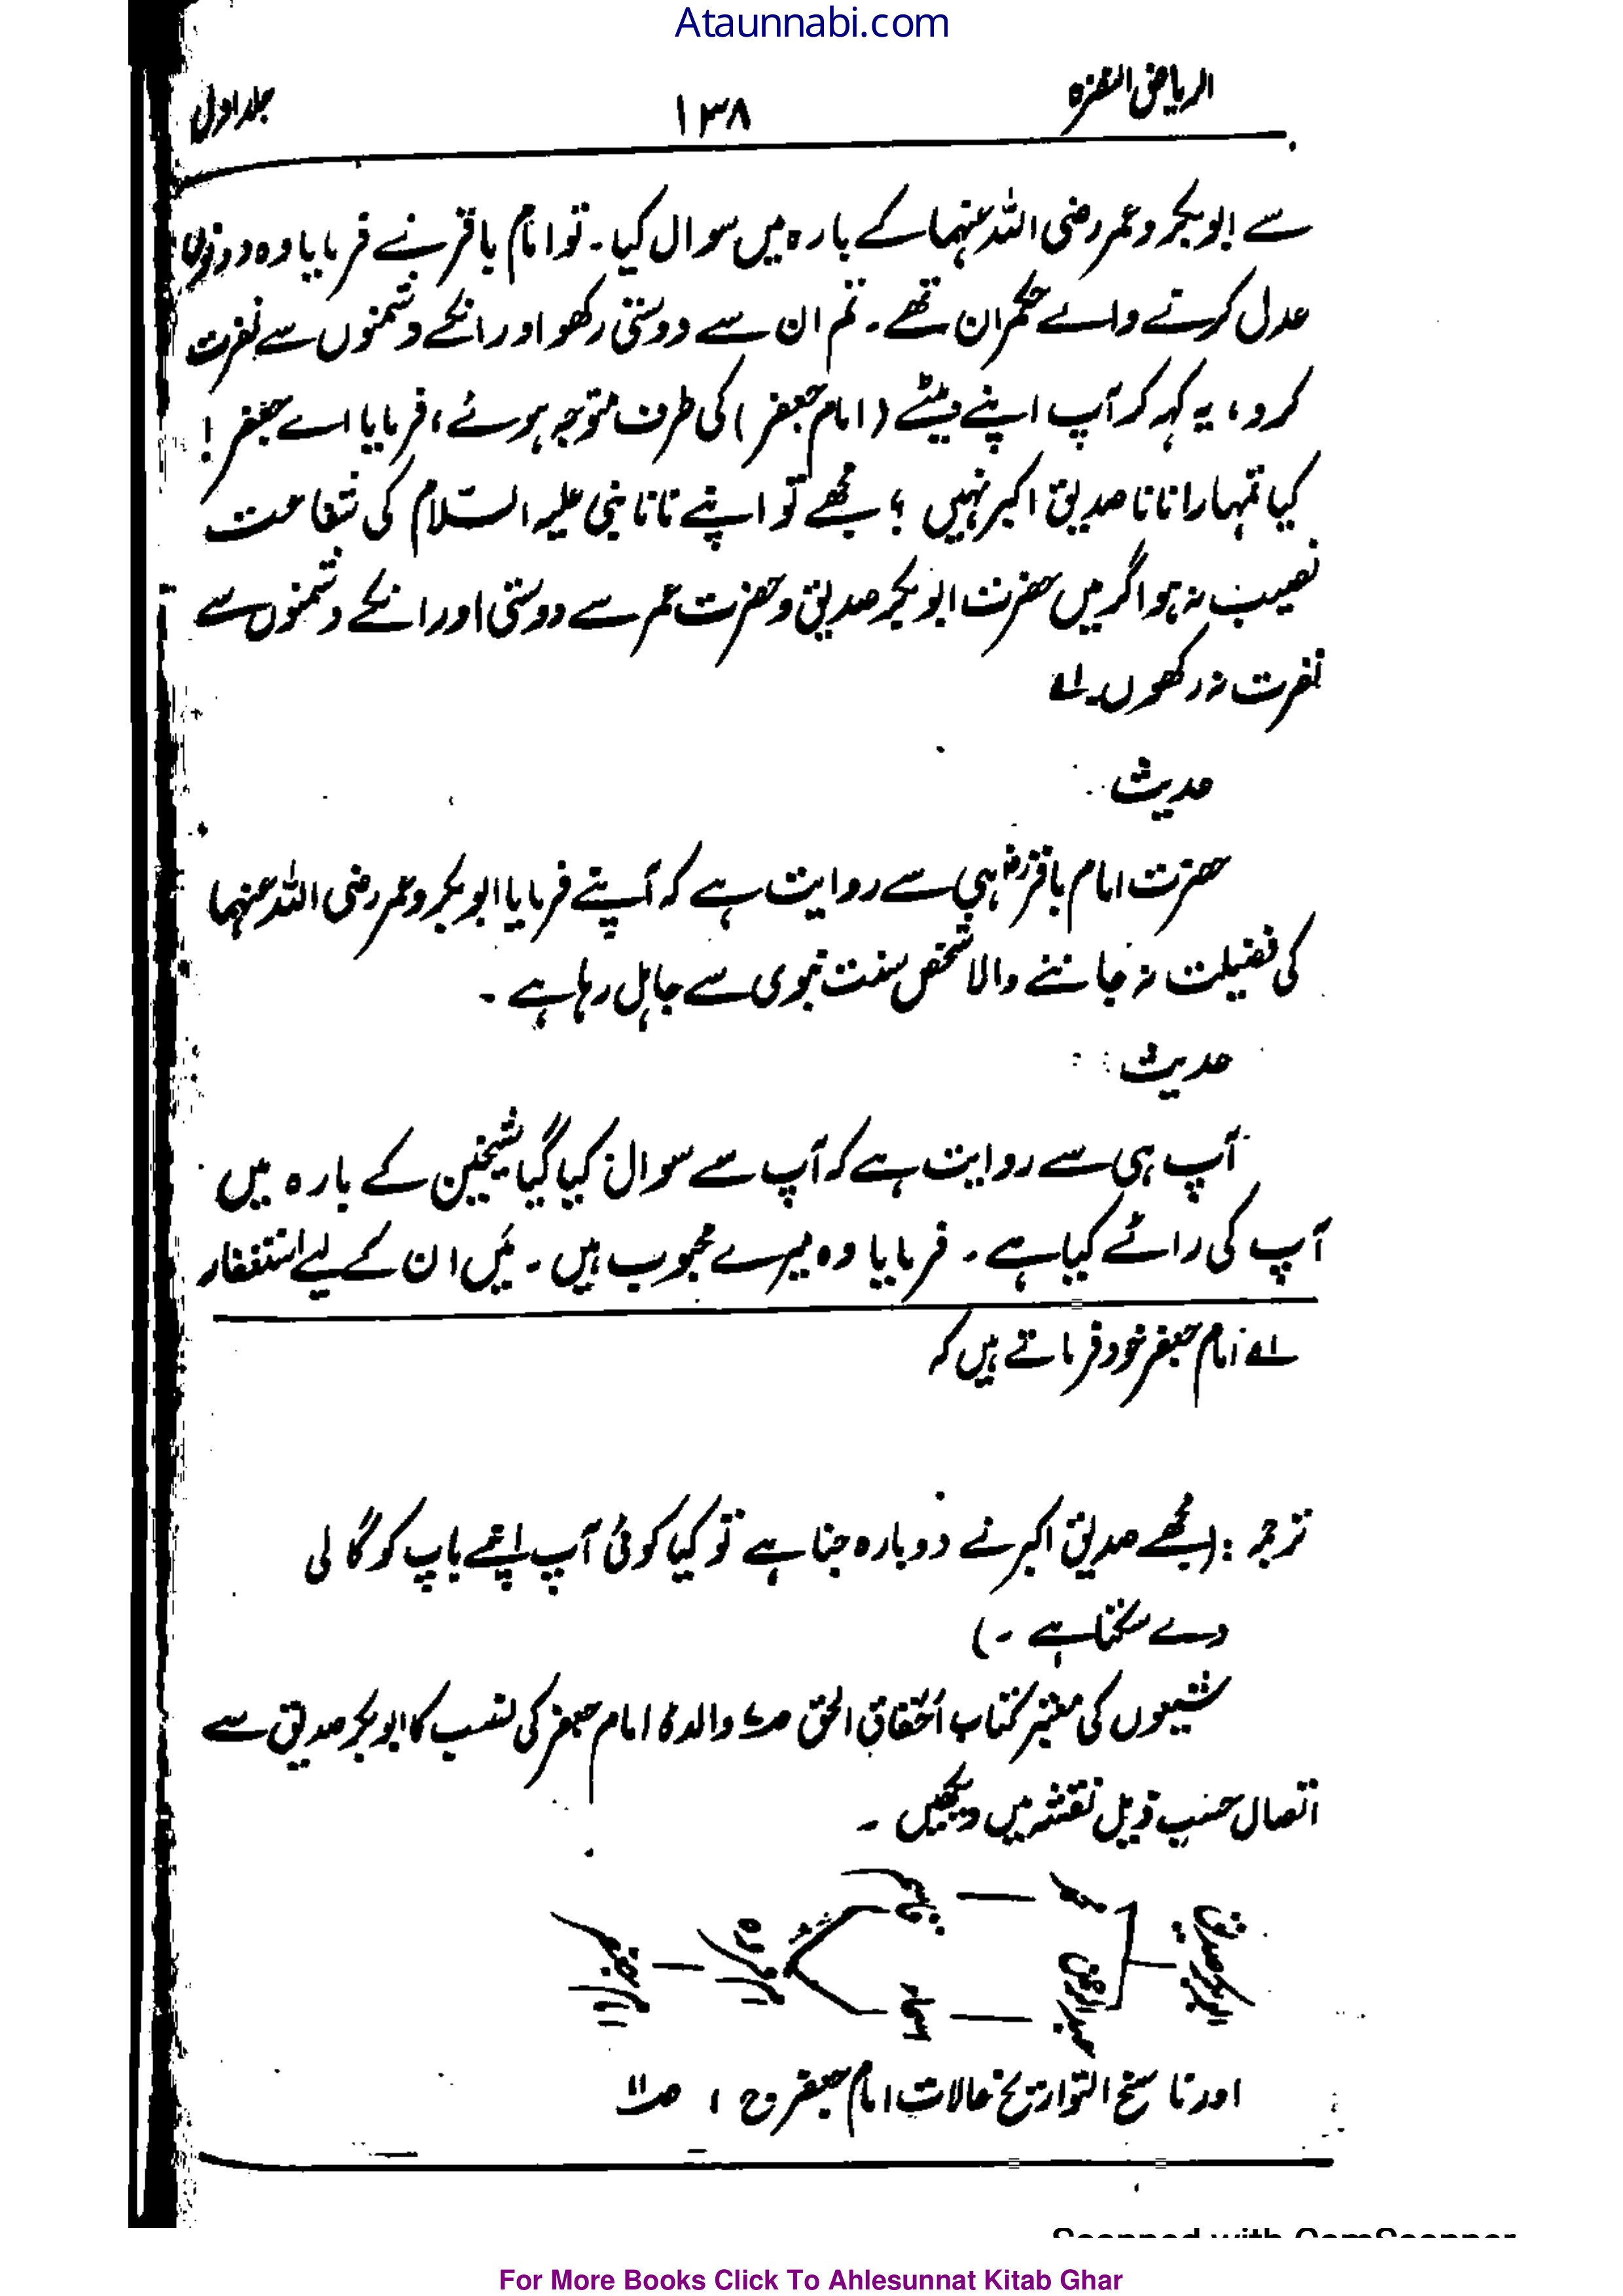 Ataunnabi.com
الریاض النضرہ ۱۳۸ جلد اول
سے ابوبکر و عمر رضی اللہ عنہما کے بارہ میں سوال کیا۔ تو امام باقر نے فرمایا وہ دونوں
عدل کرنے والے حکمران تھے۔ تم ان سے دوستی رکھو اور انکے دشمنوں سے نفرت
کرو، یہ کہہ کر آپ اپنے بیٹے (امام جعفر) کی طرف متوجہ ہوئے، فرمایا اے جعفر!
کیا تمہارا نانا صدیق اکبر نہیں؟ مجھے تو اپنے نانا نبی علیہ السّلام کی شفاعت
نصیب نہ ہو اگر میں حضرت ابوبکر صدیق و حضرت عمر سے دوستی اور انکے دشمنوں سے
نفرت نہ رکھوں۔ لے
حدیث
حضرت امام باقرؓ ہی سے روایت ہے کہ آپنے فرمایا ابوبکر و عمر رضی اللہ عنہما
کی فضیلت نہ جاننے والا شخص سنت نبوی سے جاہل رہا ہے۔
حدیث :
آپ ہی سے روایت ہے کہ آپ سے سوال کیا گیا شیخین کے بارہ میں
آپ کی رائے کیا ہے۔ فرمایا وہ میرے محبوب ہیں۔ میَں ان کے لیے استغفار
لے امام جعفر خود فرماتے ہیں کہ
ترجمہ : (مجھے صدیق اکبر نے دوبارہ جنا ہے تو کیا کوئی آپ اپنے باپ کو گالی
دے سکتا ہے۔)
شیعوں کی معتبر کتاب اَحقاق الحق صے والدۂ امام جعفر کی نسب کا ابوبکر صدیق سے
اتصال حسب ذیل نقشہ میں دیکھیں۔
ابوبکر صدیق محمد قاسم
عبدالرحمٰن اسماء ام فروہ امام جعفر
اور ناسخ التواریخ حالات امام جعفر ج ۱ صلا
For More Books Click To Ahlesunnat Kitab Ghar